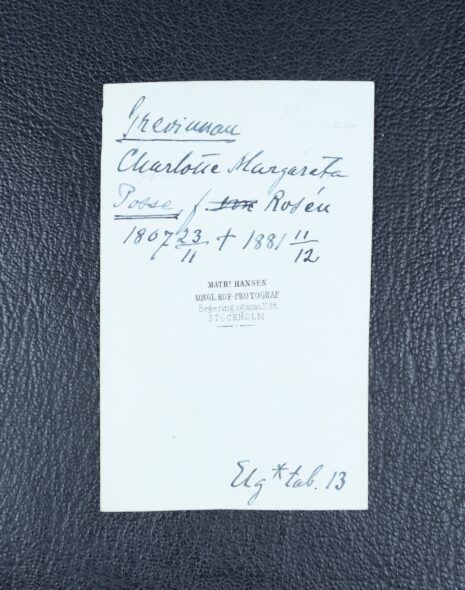 Grevinnan
Charlotte Margareta
Posse, f. von Rosén
1807 23/11 † 1881 11/12
MATHS HANSEN
KONGL. HOF-PHOTOGRAF
Regeringsgatan No 28.
STOCKHOLM.
Elg * tab. 13